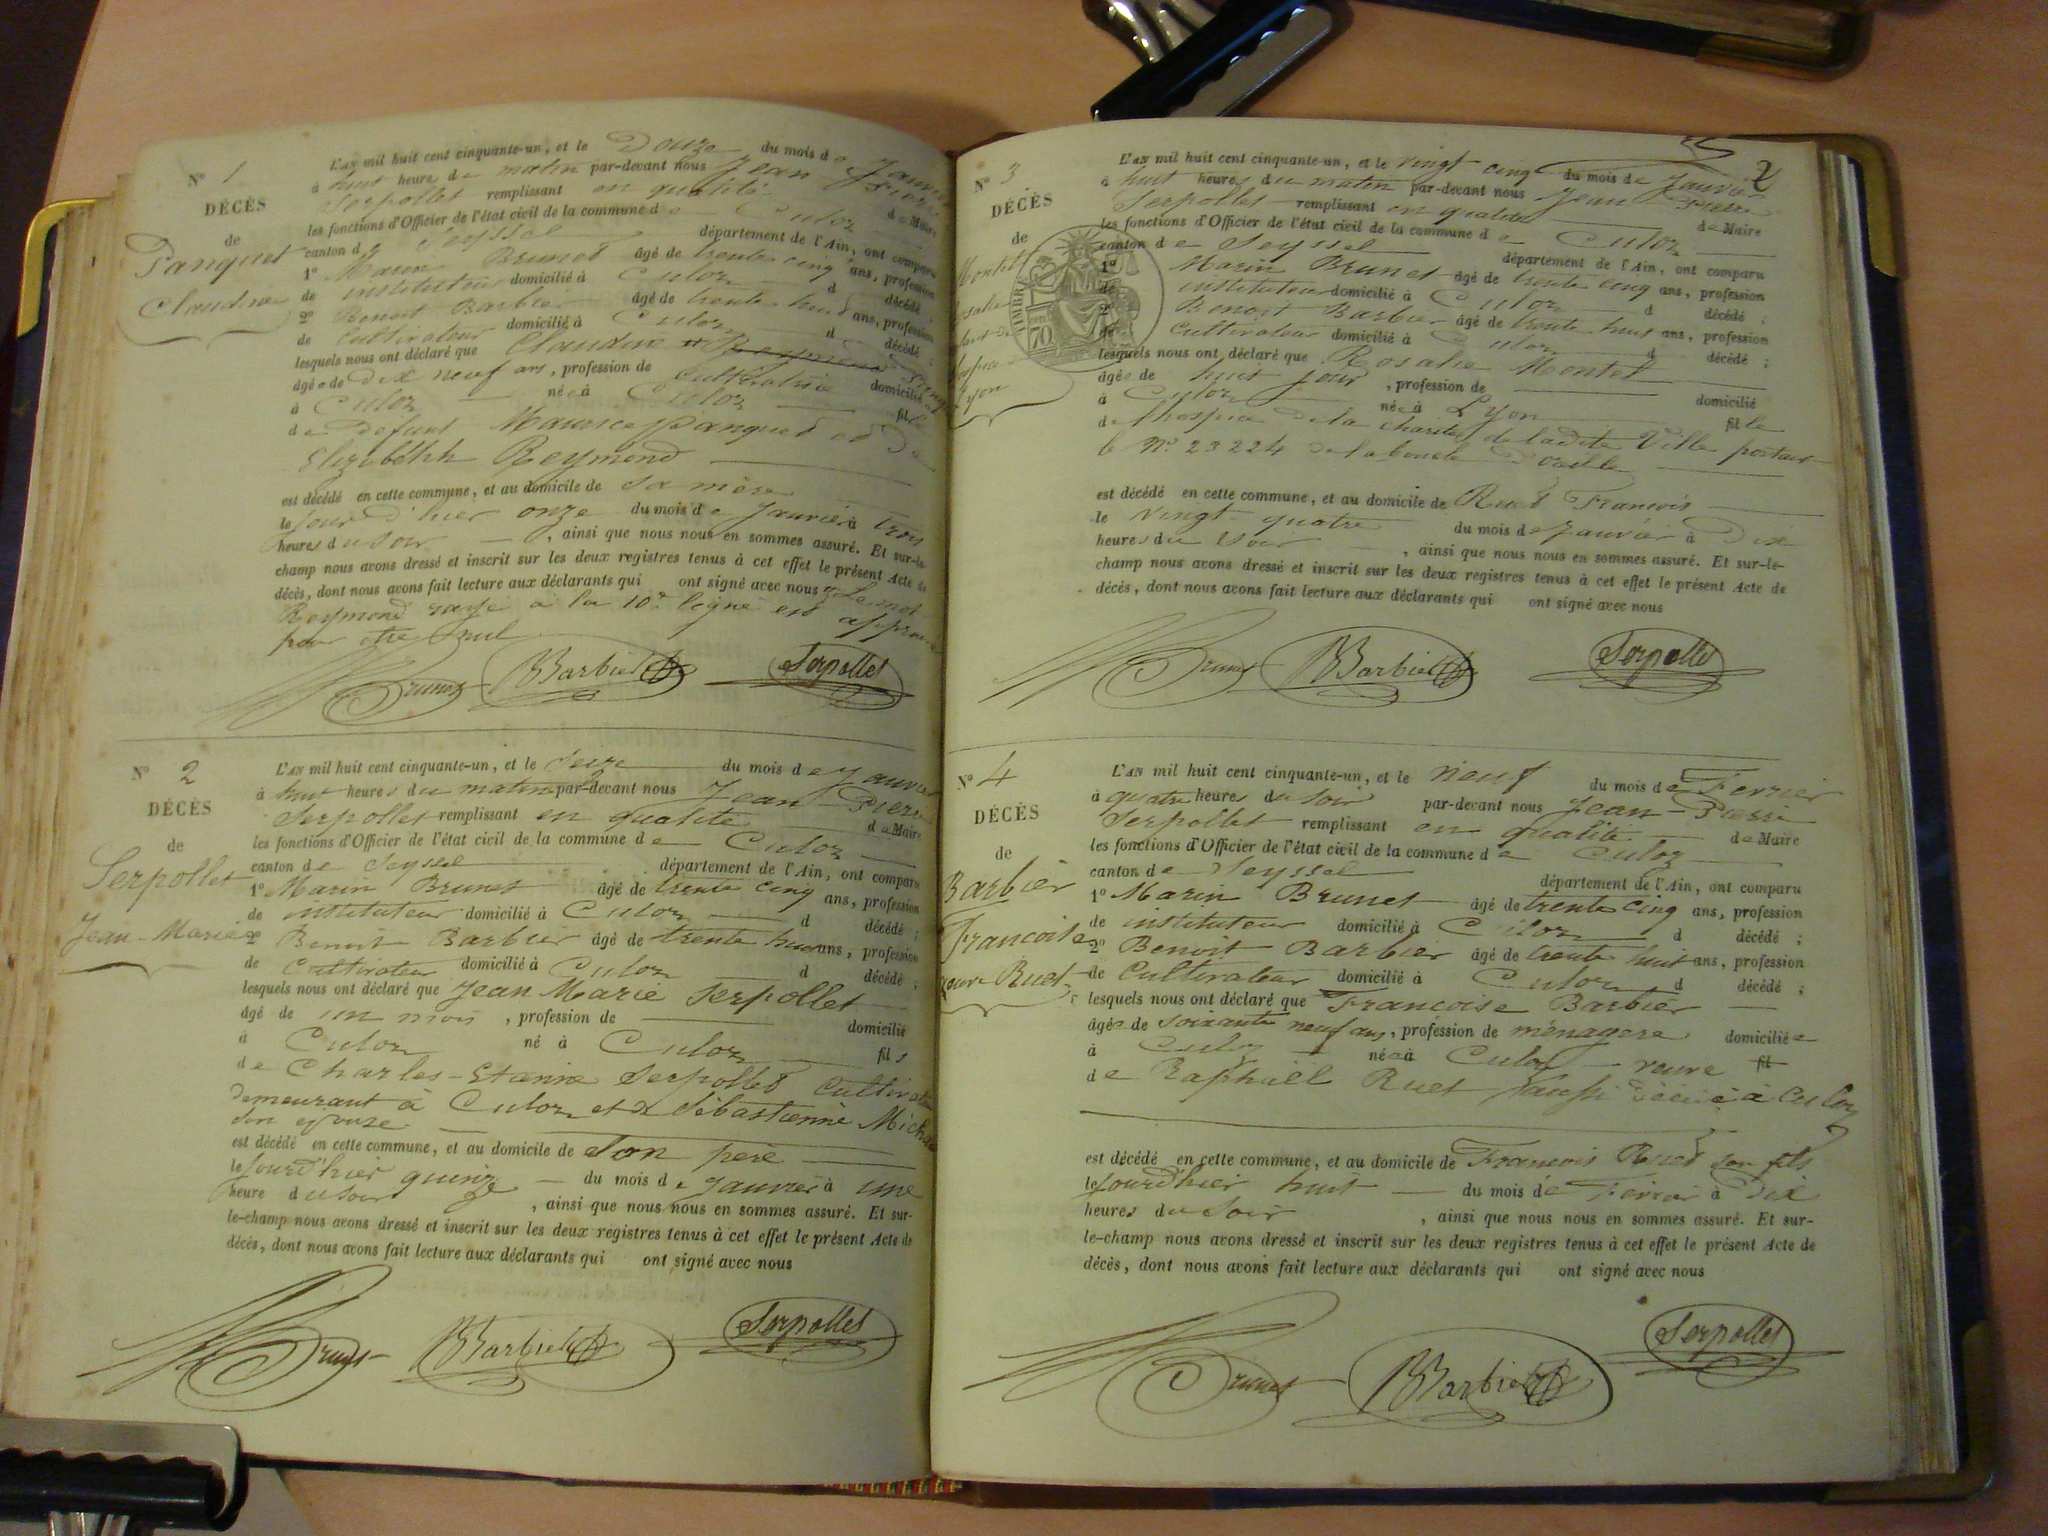 N° 1
DÉCÈS
de
Panquet
Claudine
L'AN mil huit cent cinquante-un, et le Douze du mois de Janvier
à huit heures du matin par-devant nous Jean Pierre
Serpollet remplissant en qualité de Maire
les fonctions d'Officier de l'état civil de la commune de Culoz
canton de Seyssel département de l'Ain, ont comparu
1° Marin Brunet âgé de trente cinq ans, profession
de instituteur domicilié à Culoz d décédé ;
2° Benoit Barbier âgé de trente huit ans, profession
de Cultivateur domicilié à Culoz d décédé ;
lesquels nous ont déclaré que Claudine Reymond Panquet
âgée de dix neuf ans, profession de Cultivatrice domiciliée
à Culoz née à Culoz fille
de defunt Maurice Panquet et de
Elizabethh Reymond
est décédé en cette commune, et au domicile de sa mère
le jour d'hier onze du mois de Janvier à trois
heures du soir, ainsi que nous nous en sommes assuré. Et sur-le-
champ nous avons dressé et inscrit sur les deux registres tenus à cet effet le présent Acte de
décès, dont nous avons fait lecture aux déclarants qui ont signé avec nous Le mot
Reymond rayé à la 10e ligne est approuvé
pour etre nul
Brunet BBarbier Serpollet
N° 2
DÉCÈS
de
Serpollet
Jean-Marie
L'AN mil huit cent cinquante-un, et le Seize du mois de Janvier
à huit heures du matin par-devant nous Jean-Pierre
Serpollet remplissant en qualité de Maire
les fonctions d'Officier de l'état civil de la commune de Culoz
canton de Seyssel département de l'Ain, ont comparu
1° Marin Brunet âgé de trente cinq ans, profession
de instituteur domicilié à Culoz d décédé ;
2° Benoit Barbier âgé de trente huit ans, profession
de Cultivateur domicilié à Culoz d décédé ;
lesquels nous ont déclaré que Jean Marie Serpollet
âgé de un mois, profession de domicilié
à Culoz né à Culoz fils
de Charles-Etienne Serpollet Cultivateur
demeurant à Culoz et de Sébastienne Michaud
son epouze
est décédé en cette commune, et au domicile de Son père
le jourd'hier quinze du mois de Janvier à une
heure du soir, ainsi que nous nous en sommes assuré. Et sur-
le-champ nous avons dressé et inscrit sur les deux registres tenus à cet effet le présent Acte de
décès, dont nous avons fait lecture aux déclarants qui ont signé avec nous
Brunet BBarbier Serpollet
2
N° 3
DÉCÈS
de
Montet
Rosalie
hospice
Lyon
TIMBRE
70
L'AN mil huit cent cinquante-un, et le vingt cinq du mois de Janvier
à huit heures du matin par-devant nous Jean Pierre
Serpollet remplissant en qualité de Maire
les fonctions d'Officier de l'état civil de la commune de Culoz
canton de Seyssel département de l'Ain, ont comparu
1° Marin Brunet âgé de trente cinq ans, profession
de instituteur domicilié à Culoz d décédé ;
2° Benoit Barbier âgé de trente huit ans, profession
de Cultivateur domicilié à Culoz d décédé ;
lesquels nous ont déclaré que Rosalie Montet
âgée de huit jour, profession de domicilié
à Culoz née à Lyon fille
de l'hospice de la charité de ladite Ville portant
le N° 23224 de la boucle d'oreille
est décédé en cette commune, et au domicile de Ruet François
le vingt-quatre du mois de Janvier à Dix
heures du soir, ainsi que nous nous en sommes assuré. Et sur-le-
champ nous avons dressé et inscrit sur les deux registres tenus à cet effet le présent Acte de
décès, dont nous avons fait lecture aux déclarants qui ont signé avec nous
Brunet BBarbier Serpollet
N° 4
DÉCÈS
de
Barbier
Francoise
veuve Ruet
L'AN mil huit cent cinquante-un, et le neuf du mois de Fevrier
à quatre heures du soir par-devant nous Jean-Pierre
Serpollet remplissant en qualité de Maire
les fonctions d'Officier de l'état civil de la commune de Culoz
canton de Seyssel département de l'Ain, ont comparu
1° Marin Brunet âgé de trente cinq ans, profession
de instituteur domicilié à Culoz d décédé ;
2° Benoit Barbier âgé de trente huit ans, profession
de Cultivateur domicilié à Culoz d décédé ;
lesquels nous ont déclaré que Francoise Barbier
âgée de soixante neuf ans, profession de ménagere domiciliée
à Culoz née à Culoz veuve fil
de Raphaël Ruet aussi décédé à Culoz
est décédé en cette commune, et au domicile de Francois Ruet son fils
le jourd'hier huit du mois de Fevrier à Dix
heures du soir, ainsi que nous nous en sommes assuré. Et sur-
le-champ nous avons dressé et inscrit sur les deux registres tenus à cet effet le présent Acte de
décès, dont nous avons fait lecture aux déclarants qui ont signé avec nous
Brunet BBarbier Serpollet